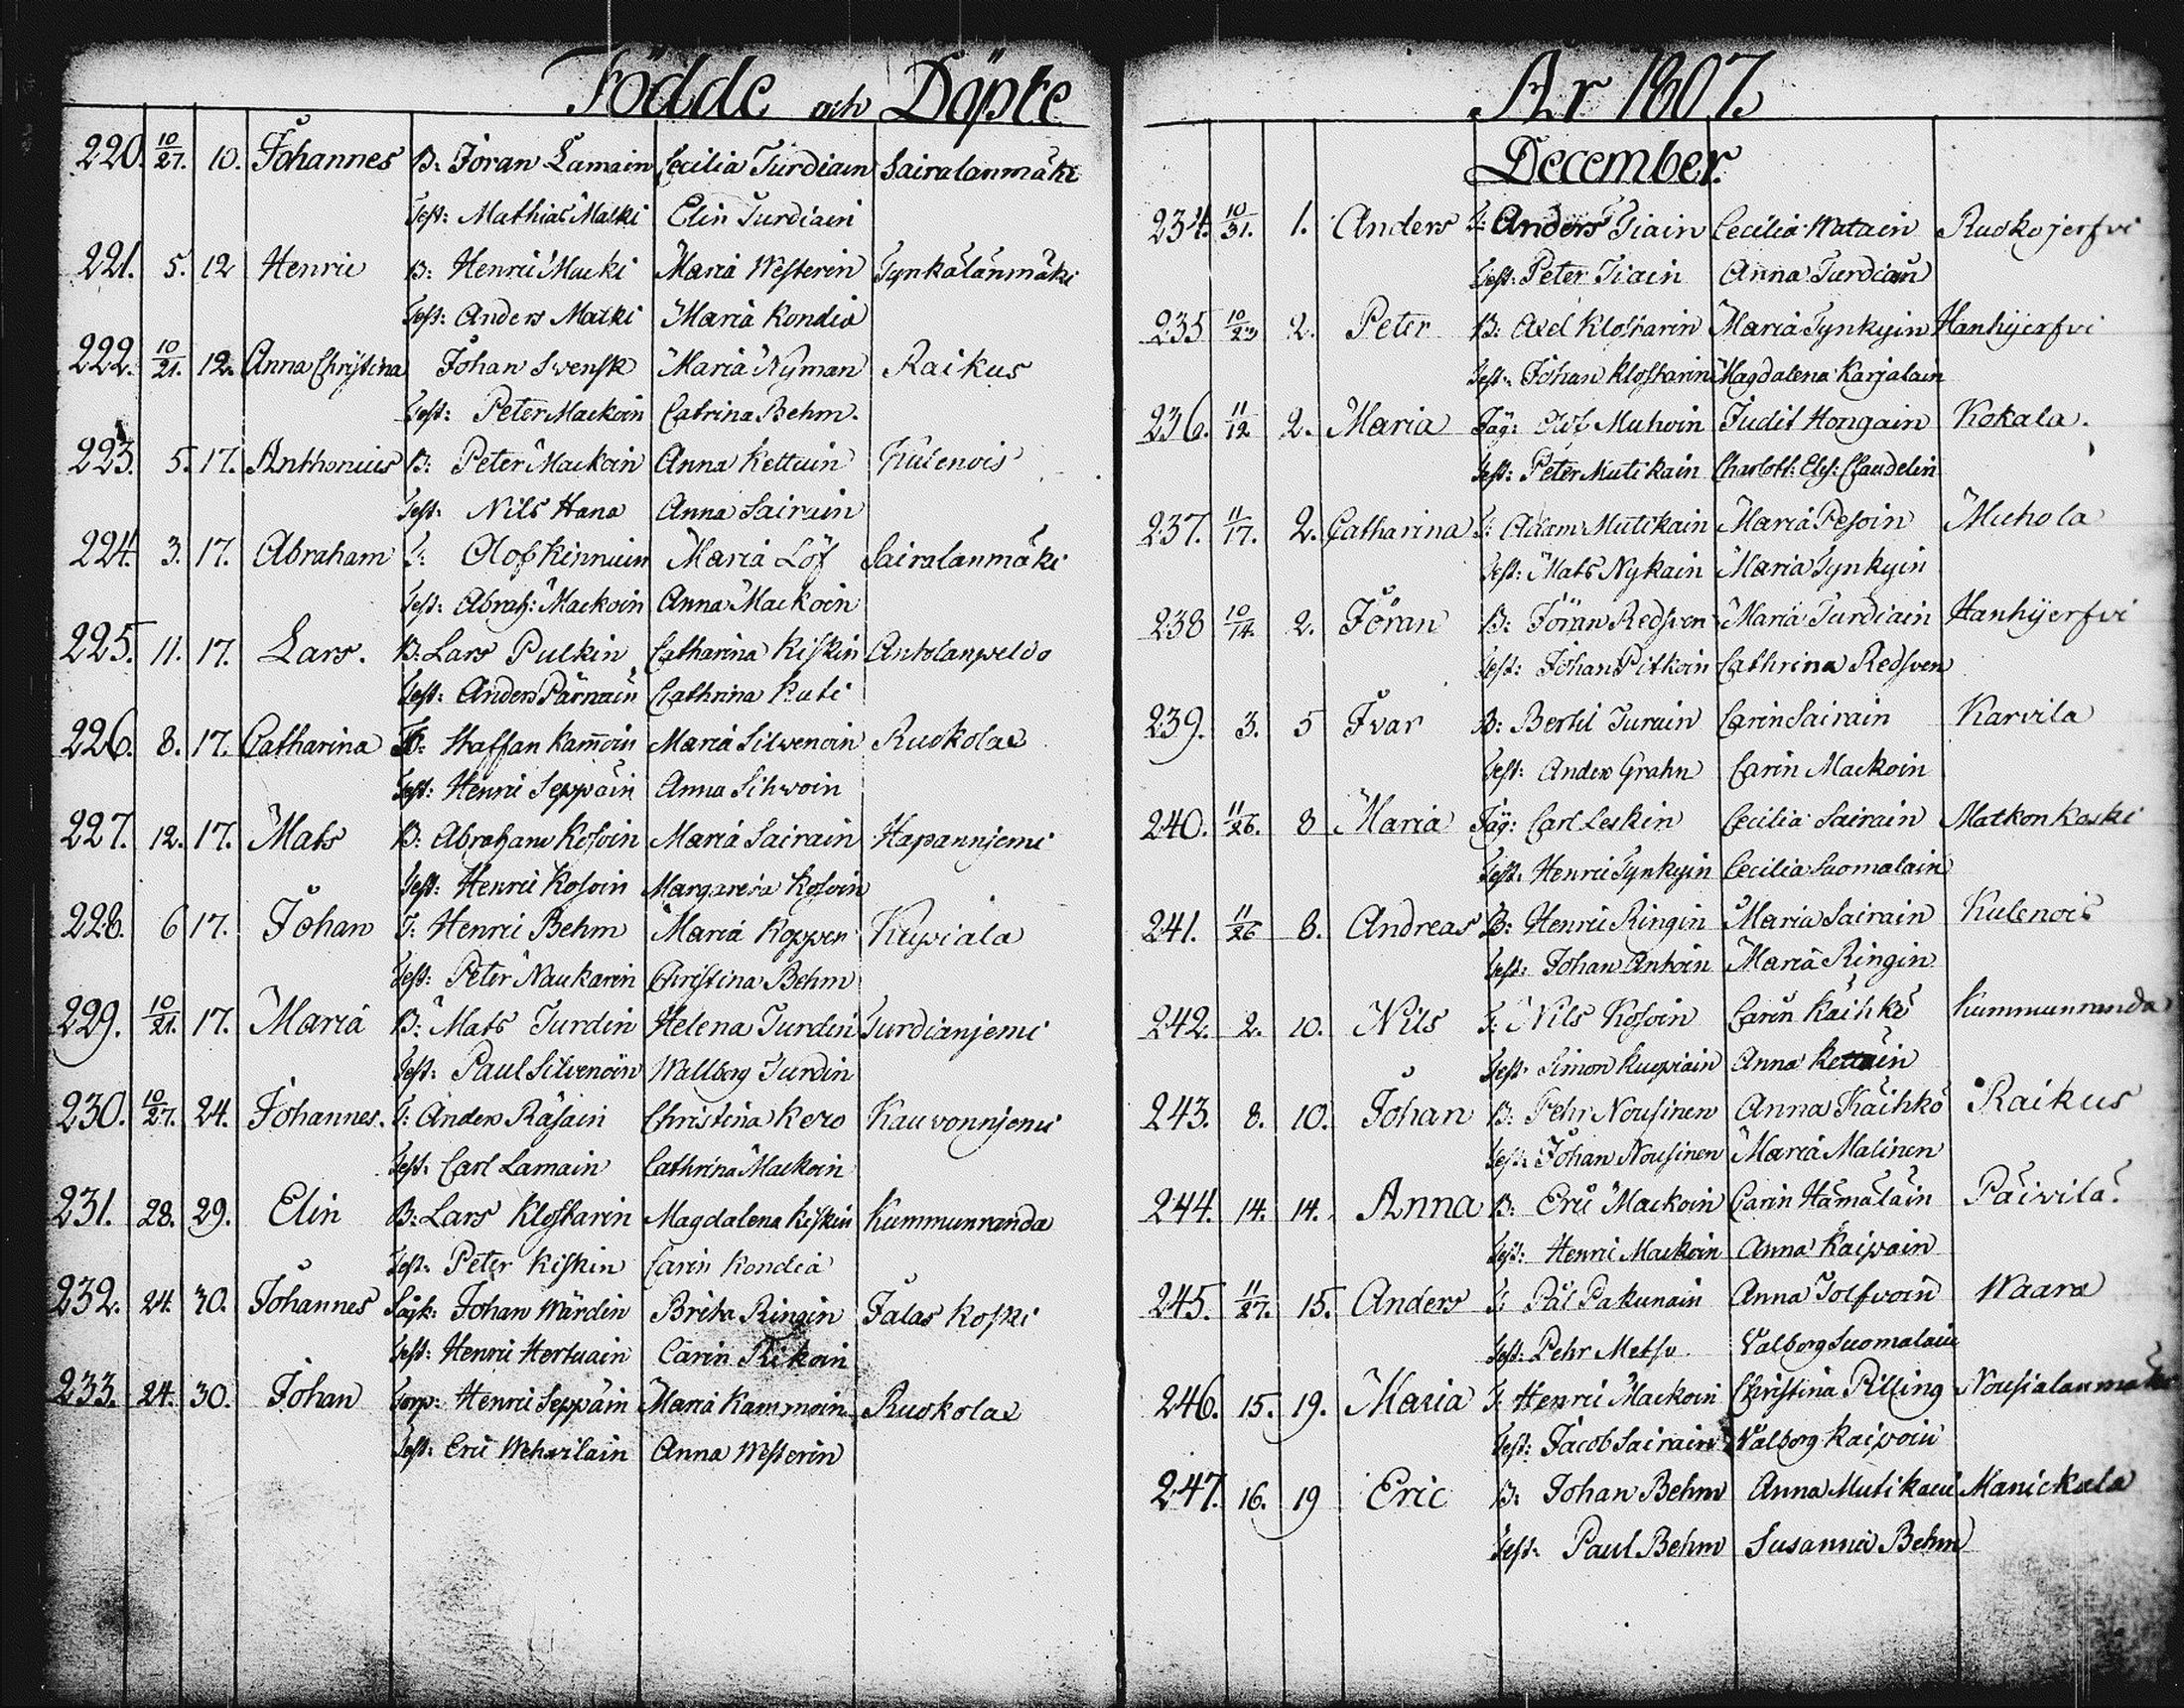 Födde och Döpte
220. 10/27. 10. Johannes B: Jöran Lamain Cecilia Turdiain Sairalanmäki
Test: Mathias Matki Elin Turdiain
221. 5. 12 Henric B: Henric Matki Maria Westerin Tynkälänmäki
Test: Anders Matki Maria Kondia
222. 10/21. 12. Anna Christina Johan Svensk Maria Nyman Raikus
Test: Peter Mackoin Catrina Behm.
223. 5. 17. Anthonius B: Peter Mackoin Anna Kettuin Kulenois
Test: Nils Hana Anna Sairain
224. 3. 17. Abraham T: Olof Kinnuin Maria Löf Sairalanmäki
Test: Abrah: Mackoin Anna Mackoin
225. 11. 17. Lars. B: Lars Pulkin Catharina Kiskin Antolanpeldo
Test: Anders Pärnäin Cathrina Kuti
226. 8. 17. Catharina Staffan Kam̄oin Maria Silvenoin Ruokolax
Test: Henric Seppäin Anna Sihvoin
227. 12. 17. Mats B: Abraham Kosoin Maria Sairain Hapannjemi
Test: Henric Kosoin Margareta Kosoin
228. 6 17. Johan T: Henric Behm Maria Koppen Kupiala
Test: Peter Naukarin Christina Behm
229. 10/21. 17. Maria B: Mats Turdin Helena Turdin Turdianjemi
Test: Paul Silvenöin Wallborg Turdin
230. 10/27. 24. Johannes. T: Anders Räsäin Christina Kero Kauvonnjemi
Test: Carl Lamain Cathrina Mackoin
231. 28. 29. Elin B: Lars Klostarin Magdalena Kiskin Kummunranda
Test: Peter Kiskin Carin Kondia
232. 24. 30. Johannes Johan Wärdin Brita Ringin Jalas Koski
Test: Henric Hertuain Carin
233. 24. 30. Johan Torp: Henric Seppäin Maria Kammoin Ruokolax
Test: Eric Wehvilain Anna Westerin
År 1807.
December.
234. 10/31. 1. Anders T: Anders Tiain Cecilia Matain Ruokojerfvi
Test: Peter Tiain Anna Turdiain
235 10/23 2. Peter B: Axel Klostarin Maria Tynkyin Hanhijerfvi
Test: Johan Klostarin Magdalena Karjalain
236. 11/12 2. Maria Jäg: Olof Muhoin Judit Hongain Kokala.
Test: Peter Mutikain Charlott: Elis: Claudelin
237. 11/17. 2. Catharina T: Adam Mutikain Maria Pesoin Muhola
Test: Mats Nykain Maria Tynkyin
238 10/14. 2. Jöran B: Jöran Redsven Maria Turdiain Hanhijerfvi
Test: Johan Pitkoin Cathrina Redsven
239. 3. 5 Ivar B: Bertil Turuin Carin Sairain Karvila
Test: Anders Grahn Carin Mackoin
240. 11/26. 8 Maria Jäg: Carl Leskin Cecilia Sairain Matkonkoski
Test: Henric Tynkyin Cecilia Suomalain
241. 11/26 8. Andreas B: Henric Ringin Maria Sairain Kulenois
Test: Johan Antoin Maria Ringin
242. 2. 10. Nils T: Nils Kosoin Carin Käihkö Kummunranda
Test: Simon Kuopiain Anna Kettuin
243. 8. 10. Johan B: Pehr Nousinen Anna Käihkö Raikus
Test: Johan Nousinen Maria Malinen
244. 14. 14. Anna B: Eric Mackoin Carin Hämäläin Päivilä
Test: Henric Mackoin Anna Kaipain
245. 11/27. 15. Anders T: Pål Pakunain Anna Tolfvoin Waara
Test: Pehr Metso Valborg Suomalain
246. 15. 19. Maria T: Henric Mackoin Christina Pilling Nousialanmäki
Test: Jacob Sairain Valborg Kaipoin
247. 16. 19 Eric B: Johan Behm Anna Mutikain Manickala
Test: Paul Behm Susanna Behm